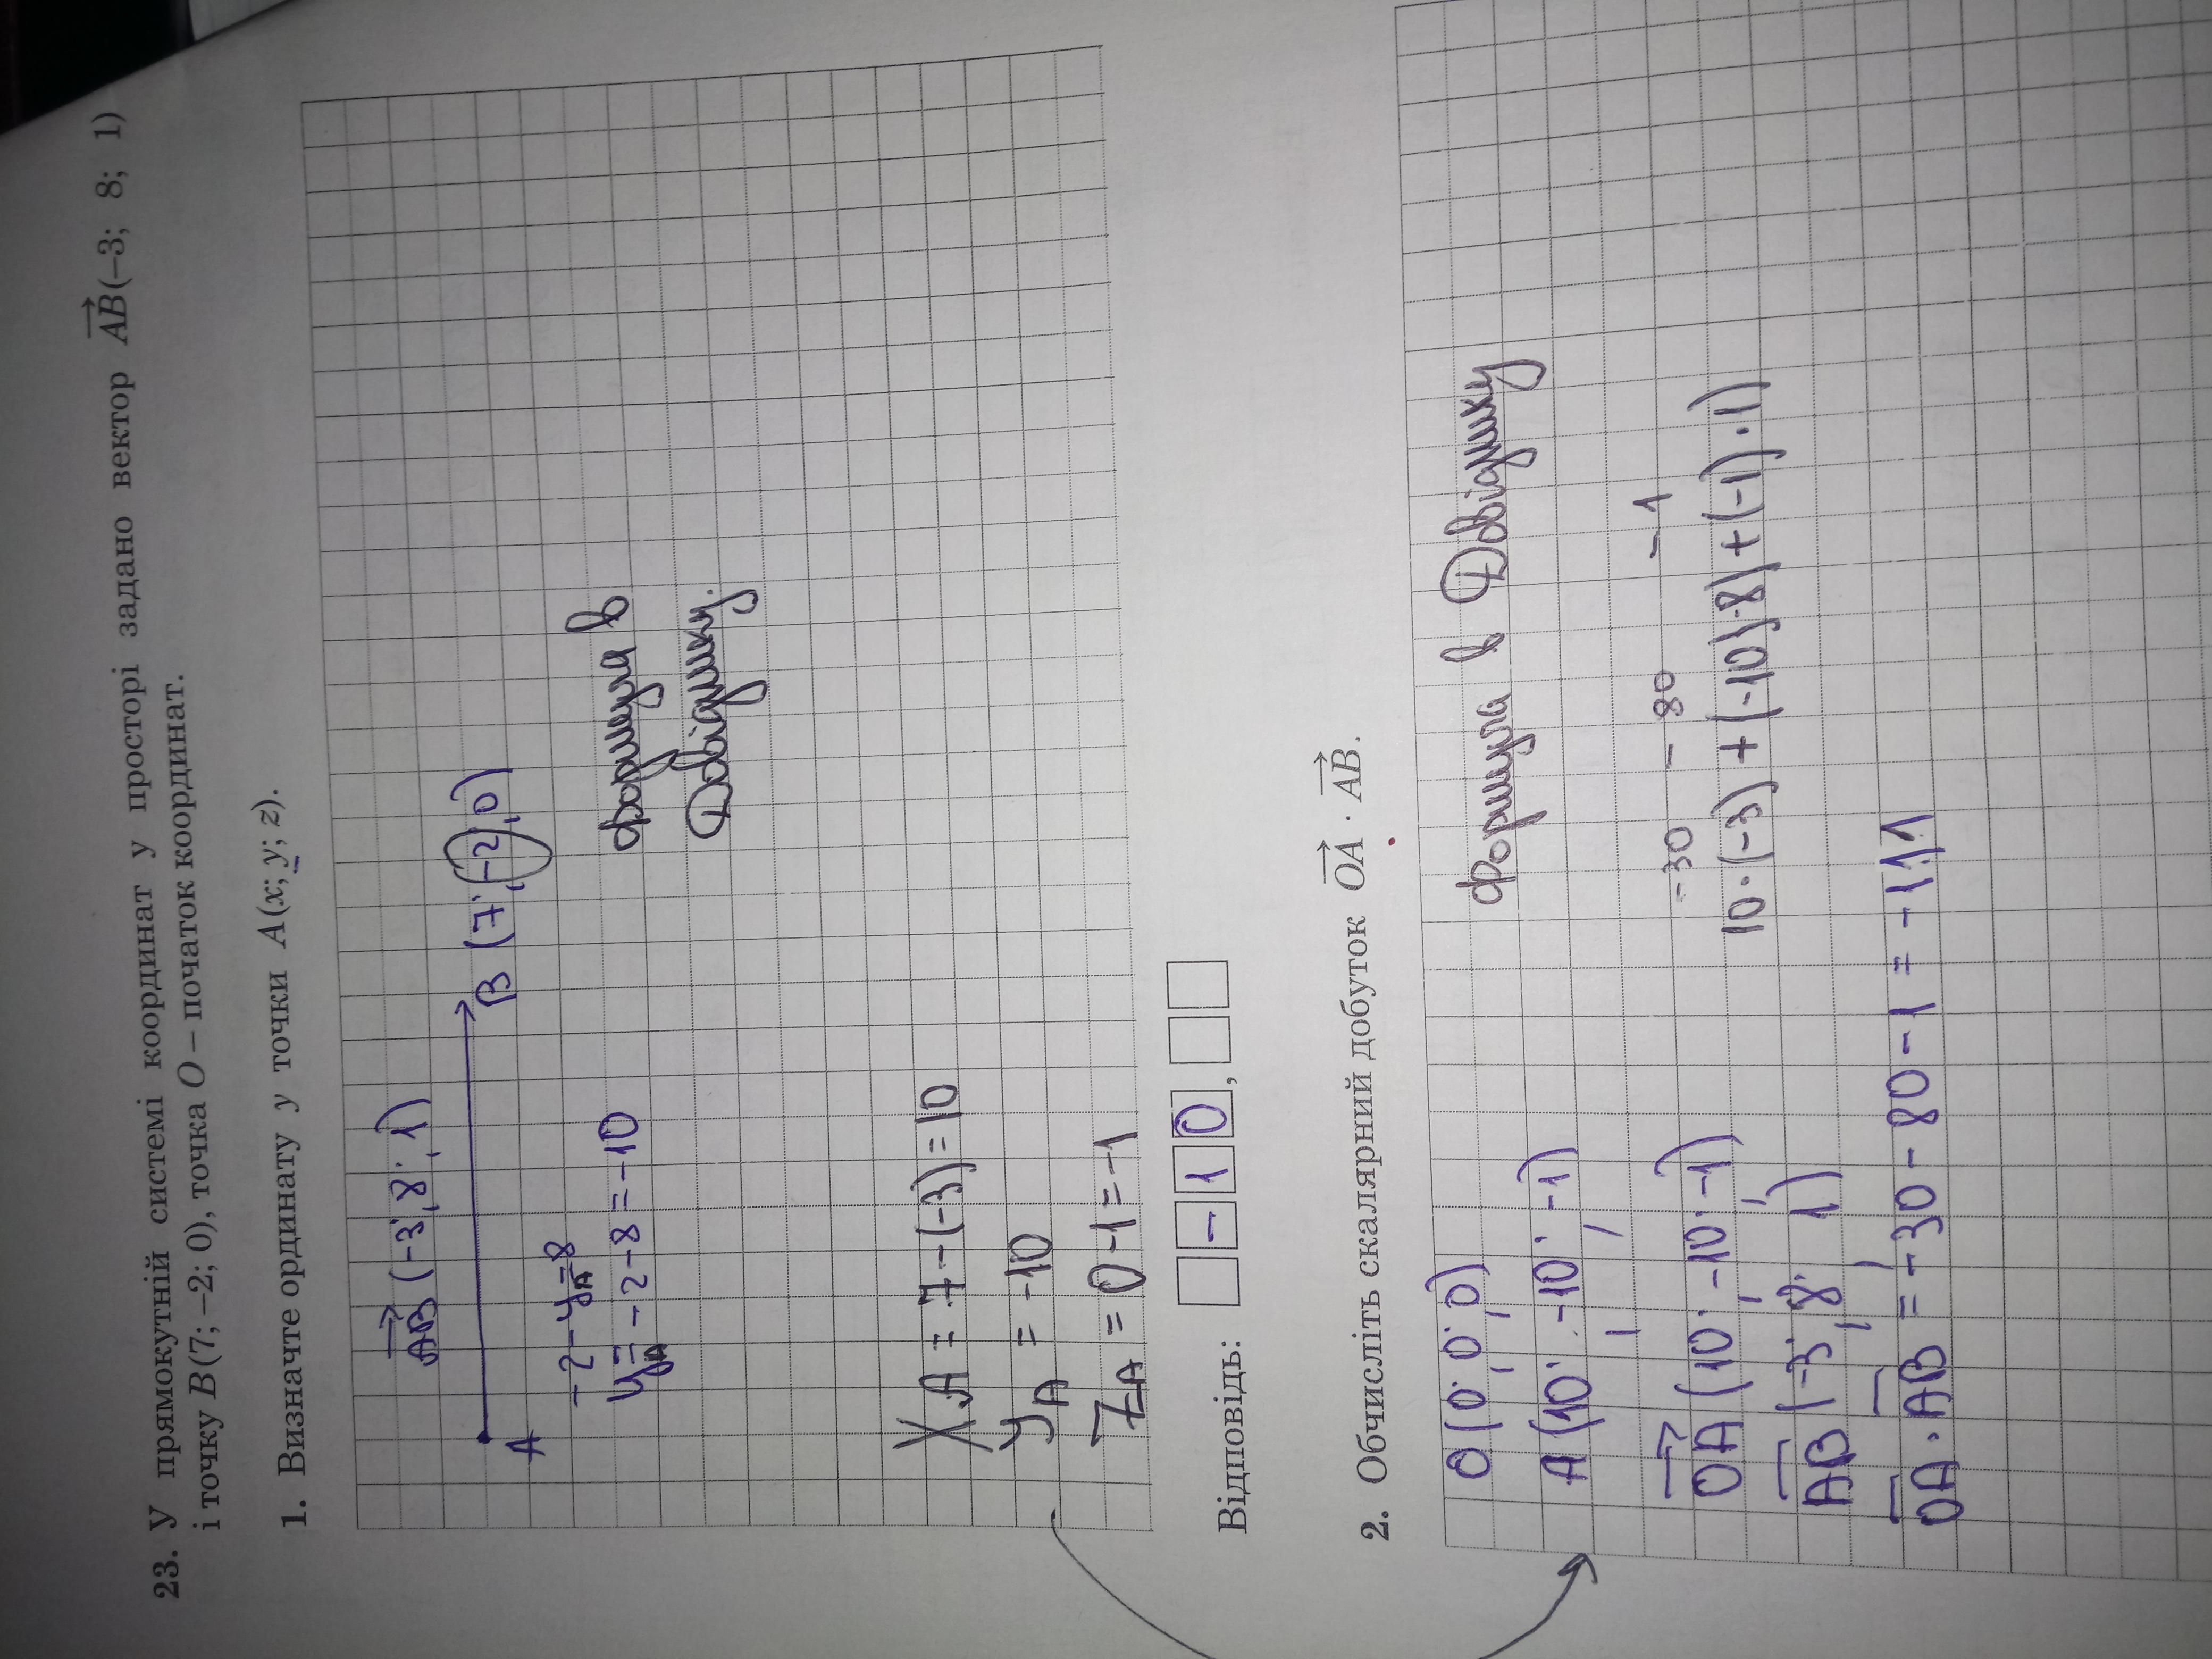 23. У прямокутній системі координат у просторі задано вектор AB(–3; 8; 1)
і точку B(7; –2; 0), точка O – початок координат.
1. Визначте ординату y точки A(x; y; z).
AB (-3; 8; 1)
A
B (7; -2; 0)
-2 - yA = 8
yA = -2 - 8 = -10
формула в
Довіднику.
XA = 7 - (-3) = 10
yA = -10
ZA = 0 - 1 = -1
Відповідь: - 1 0 ,
2. Обчисліть скалярний добуток OA · AB.
O (0; 0; 0)
формула в Довіднику
A (10; -10; -1)
OA (10; -10; -1)
-30 - 80 - 1
10 · (-3) + (-10) · 8) + (-1) · 1)
AB (-3; 8; 1)
OA · AB = -30 - 80 - 1 = -111